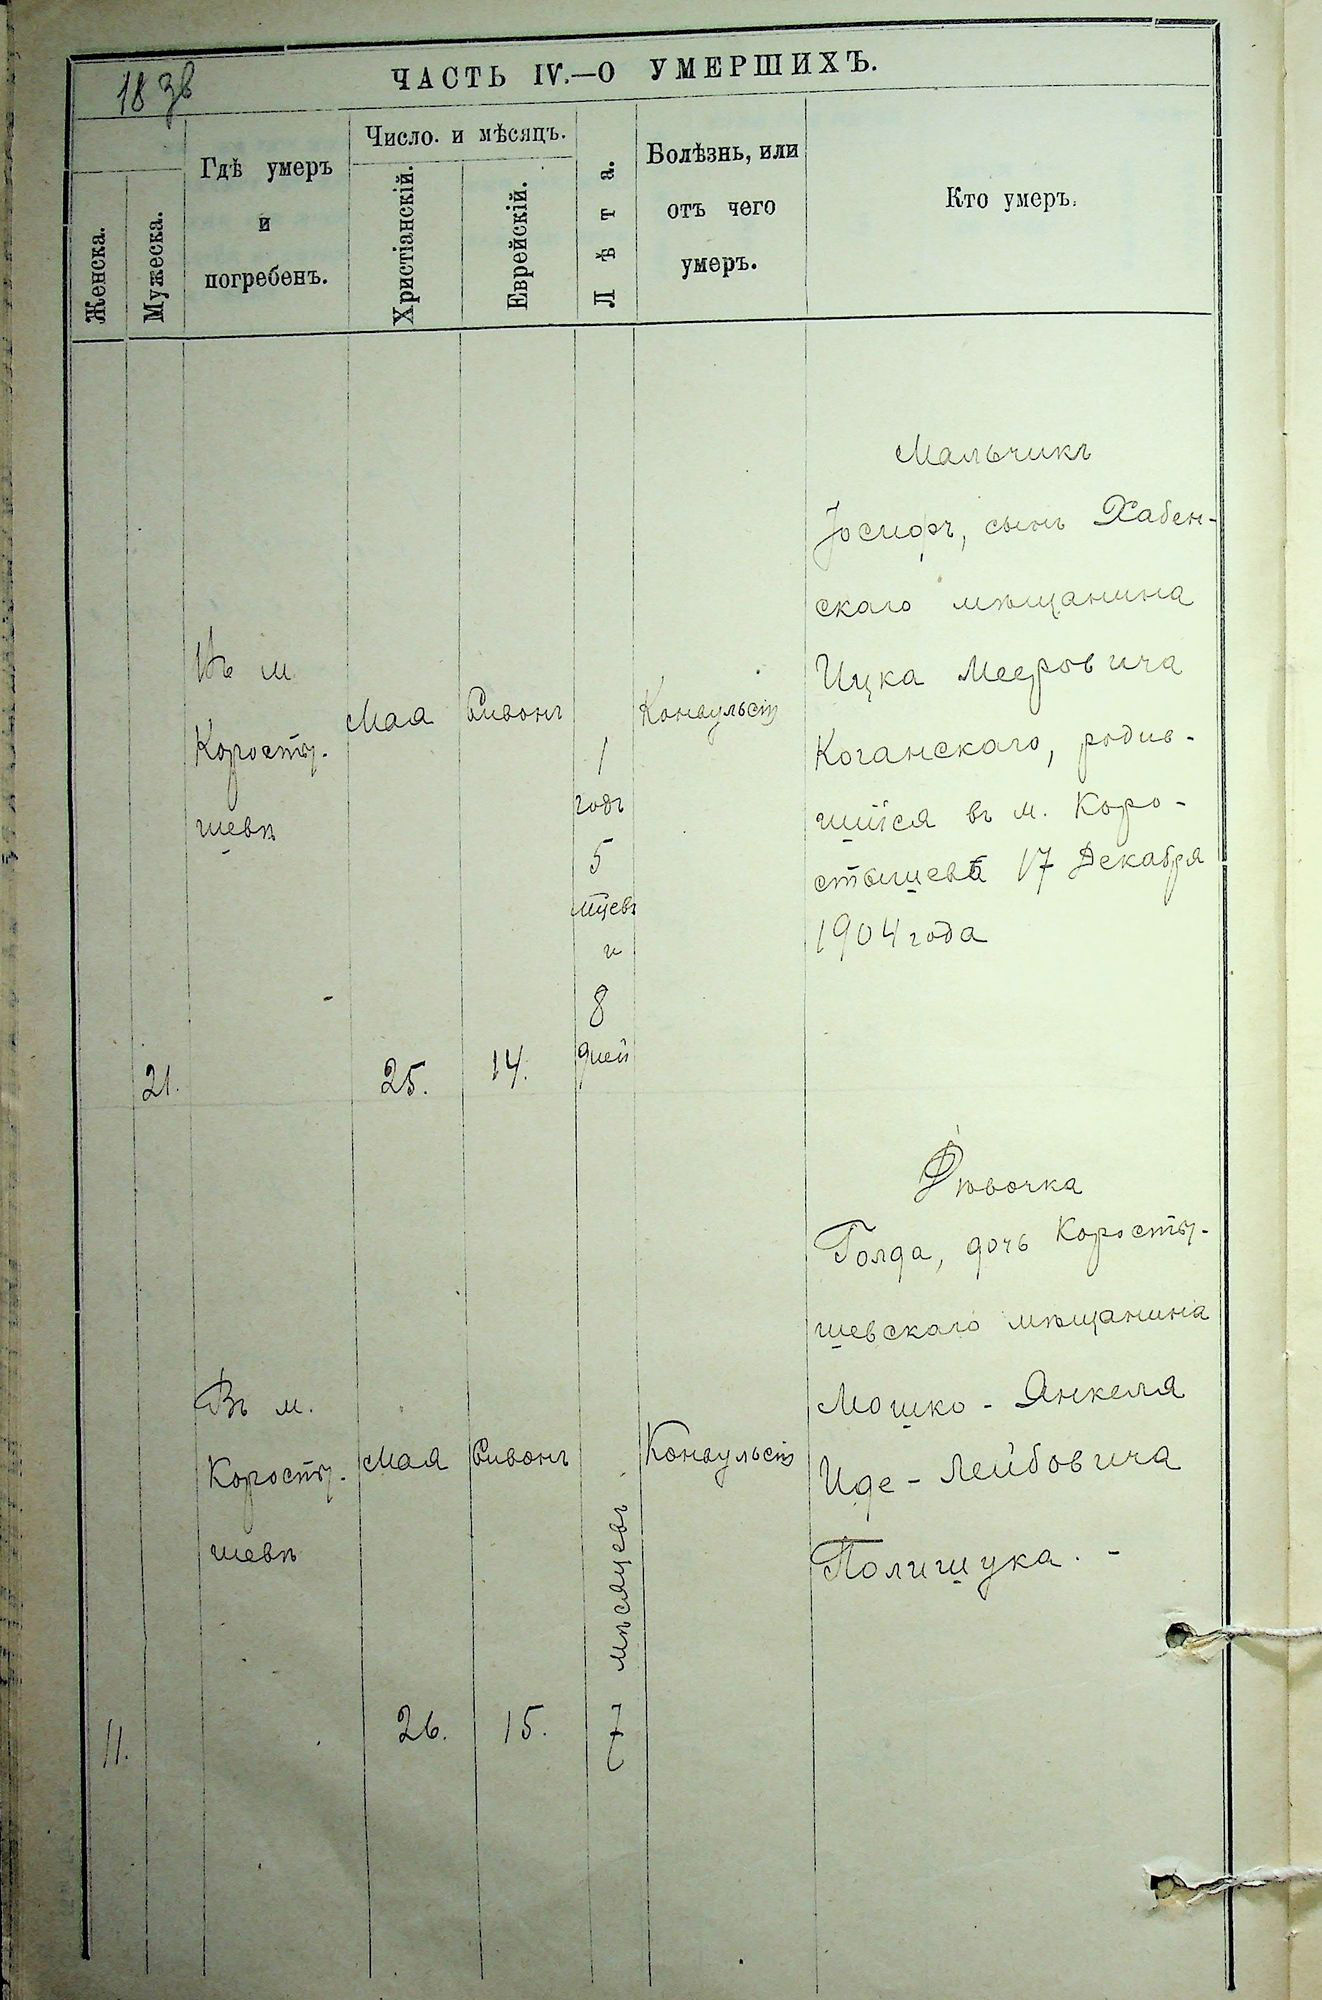 18 зв
ЧАСТЬ IV.—О УМЕРШИХЪ.
Женска.
Мужеска.
Гдѣ умеръ
и
погребенъ.
Число. и мѣсяцъ.
Христіанскій.
Еврейскій.
Лѣта.
Болѣзнь, или
отъ чего
умеръ.
Кто умеръ.
21.
Въ м.
Коросты-
шевѣ
Мая
25.
Сивонъ
14.
1
годъ
5
мцевъ
и
8
дней
Конвульсія
Мальчикъ
Іосифъ, сынъ Хабен-
скаго мѣщанина
Ицка Мееровича
Коганскаго, родив-
шійся въ м. Коро-
стышевѣ 17 Декабря
1904 года
11.
Въ м.
Коросты-
шевѣ
Мая
26.
Сивонъ
15.
7 мѣсяцевъ
Конвульсія
Дѣвочка
Голда, дочь Коросты-
шевскаго мѣщанина
Мошко-Янкеля
Иде-Лейбовича
Полищука. -